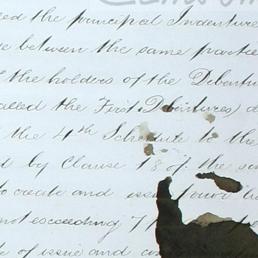 ed the principal Indenture
between the same partie
the holders of the Debentu
called the First Debentures) d
the 4th Schedule to the
d by Clause 18 of the su
to create and issue
not exceeding
of issue and